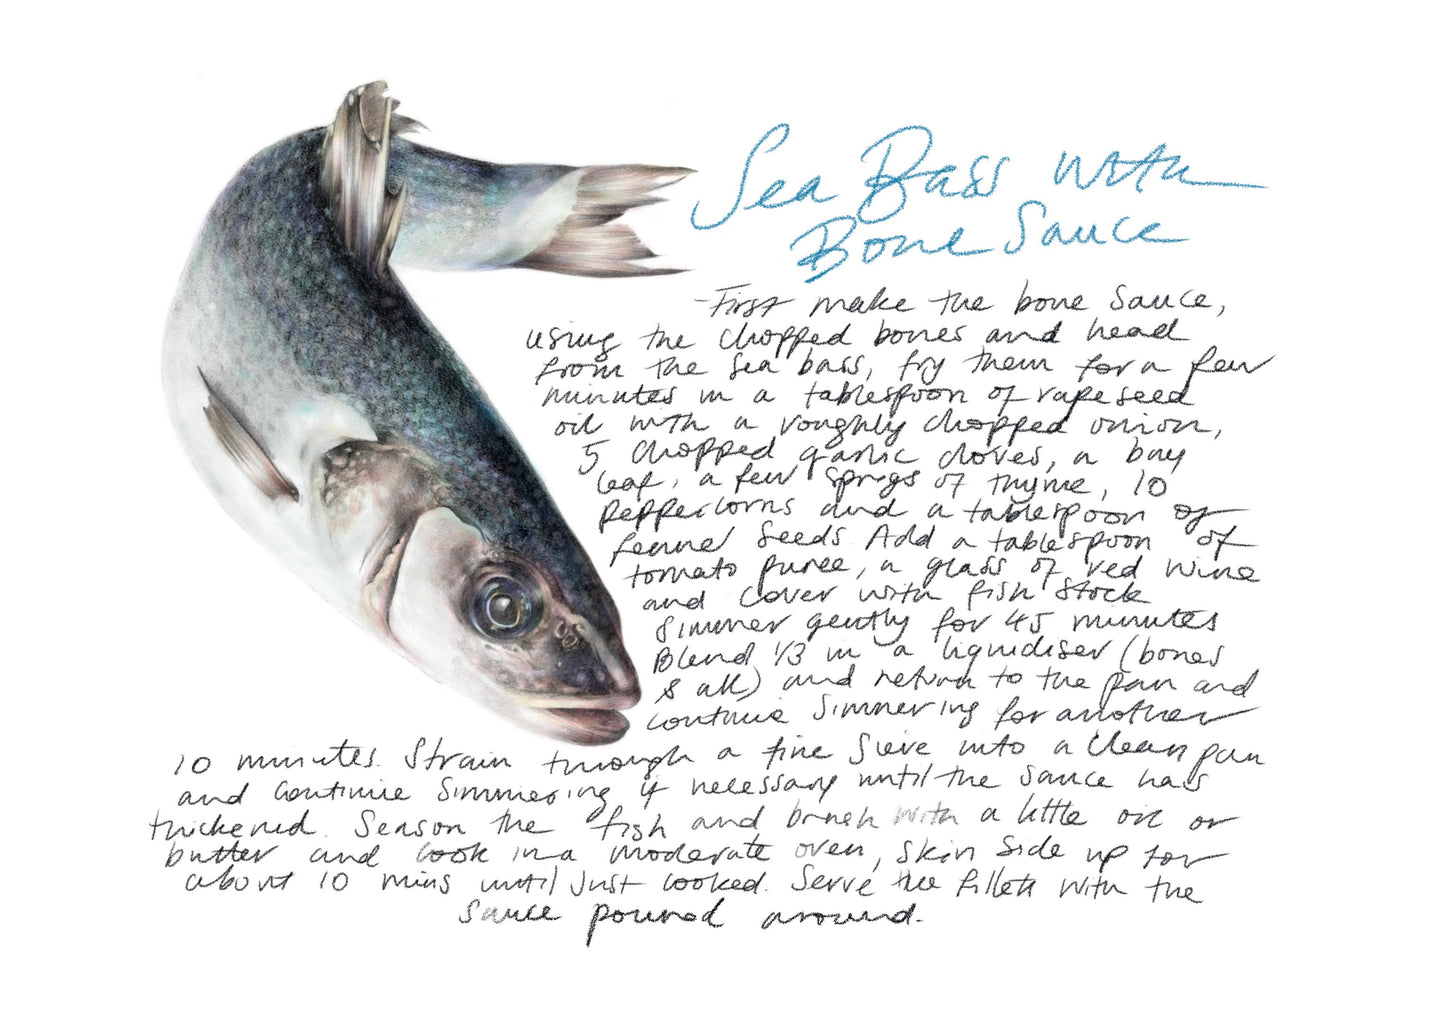 Sea Bass with
Bone Sauce
First make the bone sauce,
using the chopped bones and head
from the sea bass, fry them for a few
minutes in a tablespoon of rapeseed
oil with a roughly chopped onion,
5 chopped garlic cloves, a bay
leaf, a few sprigs of thyme, 10
peppercorns and a tablespoon of
fennel seeds. Add a tablespoon of
tomato puree, a glass of red wine
and cover with fish stock
simmer gently for 45 minutes
Blend 1/3 in a liquidiser (bones
& all) and return to the pan and
continue simmering for another
10 minutes. Strain through a fine sieve into a clean pan
and continue simmering if necessary until the sauce has
thickened. Season the fish and brush with a little oil or
butter and cook in a moderate oven, skin side up for
about 10 mins until just cooked. Serve the fillets with the
sauce poured around.